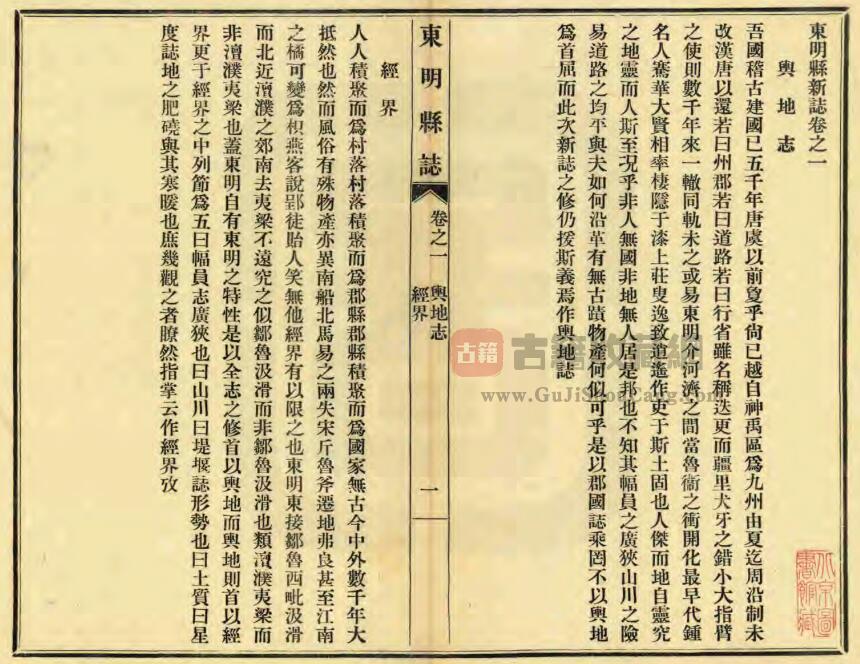 東明縣新誌卷之一
輿地志
吾國稽古建國已五千年唐虞以前敻乎尙已越自神禹區爲九州由夏迄周沿制未
改漢唐以還若曰州郡若曰道路若曰行省雖名稱迭更而疆里犬牙之錯小大指臂
之使則數千年來一轍同軌未之或易東明介河濟之間當魯衞之衝開化最早代鍾
名人騫華大賢相率棲隱于漆上莊叟逸致逍遙作吏于斯土固也人傑而地自靈究
之地靈而人斯至况乎非人無國非地無人居是邦也不知其幅員之廣狹山川之險
易道路之均平與夫如何沿革有無古蹟物產何似可乎是以郡國誌乘罔不以輿地
爲首屈而此次新誌之修仍援斯義焉作輿地誌
東明縣誌
卷之一
輿地志
經界
一
經界
人人積聚而爲村落村落積聚而爲郡縣郡縣積聚而爲國家無古今中外數千年大
抵然也然而風俗有殊物產亦異南船北馬易之兩失宋斤魯斧遷地弗良甚至江南
之橘可變爲枳燕客說郢徒貽人笑無他經界有以限之也東明東接鄒魯西毗汲滑
而北近澶濮之郊南去夷梁不遠究之似鄒魯汲滑而非鄒魯汲滑也類澶濮夷梁而
非澶濮夷梁也蓋東明自有東明之特性是以全志之修首以輿地而輿地則首以經
界更于經界之中列節爲五曰幅員志廣狹也曰山川曰堤堰誌形勢也曰土質曰星
度誌地之肥磽與其寒暖也庶幾觀之者瞭然指掌云作經界攷
古籍
古籍收藏網
www.GuJiShouCang.com